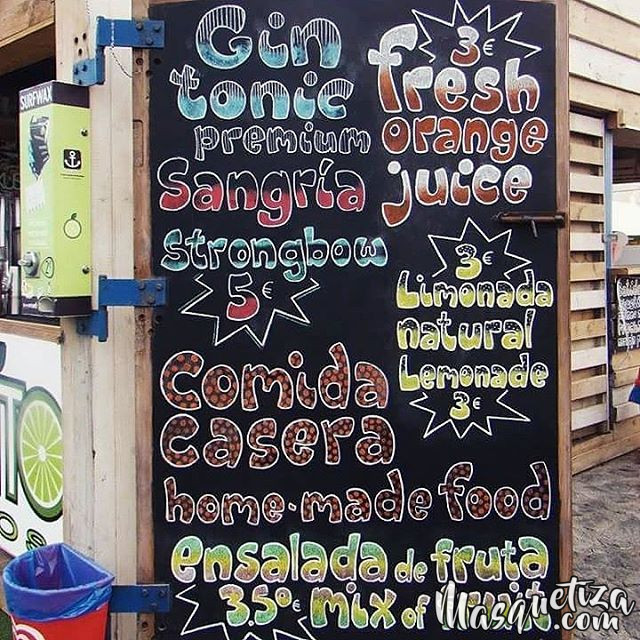 Gin
tonic
premium
Sangría
Strongbow
5€
3€
fresh
orange
juice
3€
Limonada
natural
Lemonade
3€
Comida
casera
home-made food
ensalada de fruta
3.50€ mix of fruit
SURFWAX
Masquetiza
.com